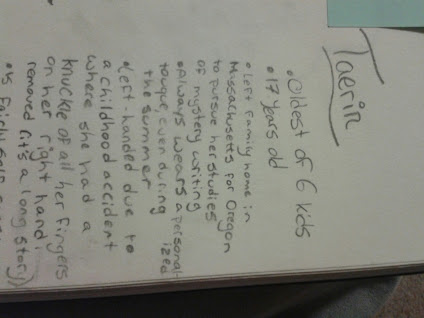 Taerin
•Oldest of 6 kids
•17 years old
•Left family home in
Massachusetts for Oregon
to pursue her studies
of mystery writing
•Always wears a personal-
ized
toque, even during
the summer
•Left-handed due to
a childhood accident
where she had a
knuckle of all her fingers
on her right hand
removed (it's a long story)
•Is fairly